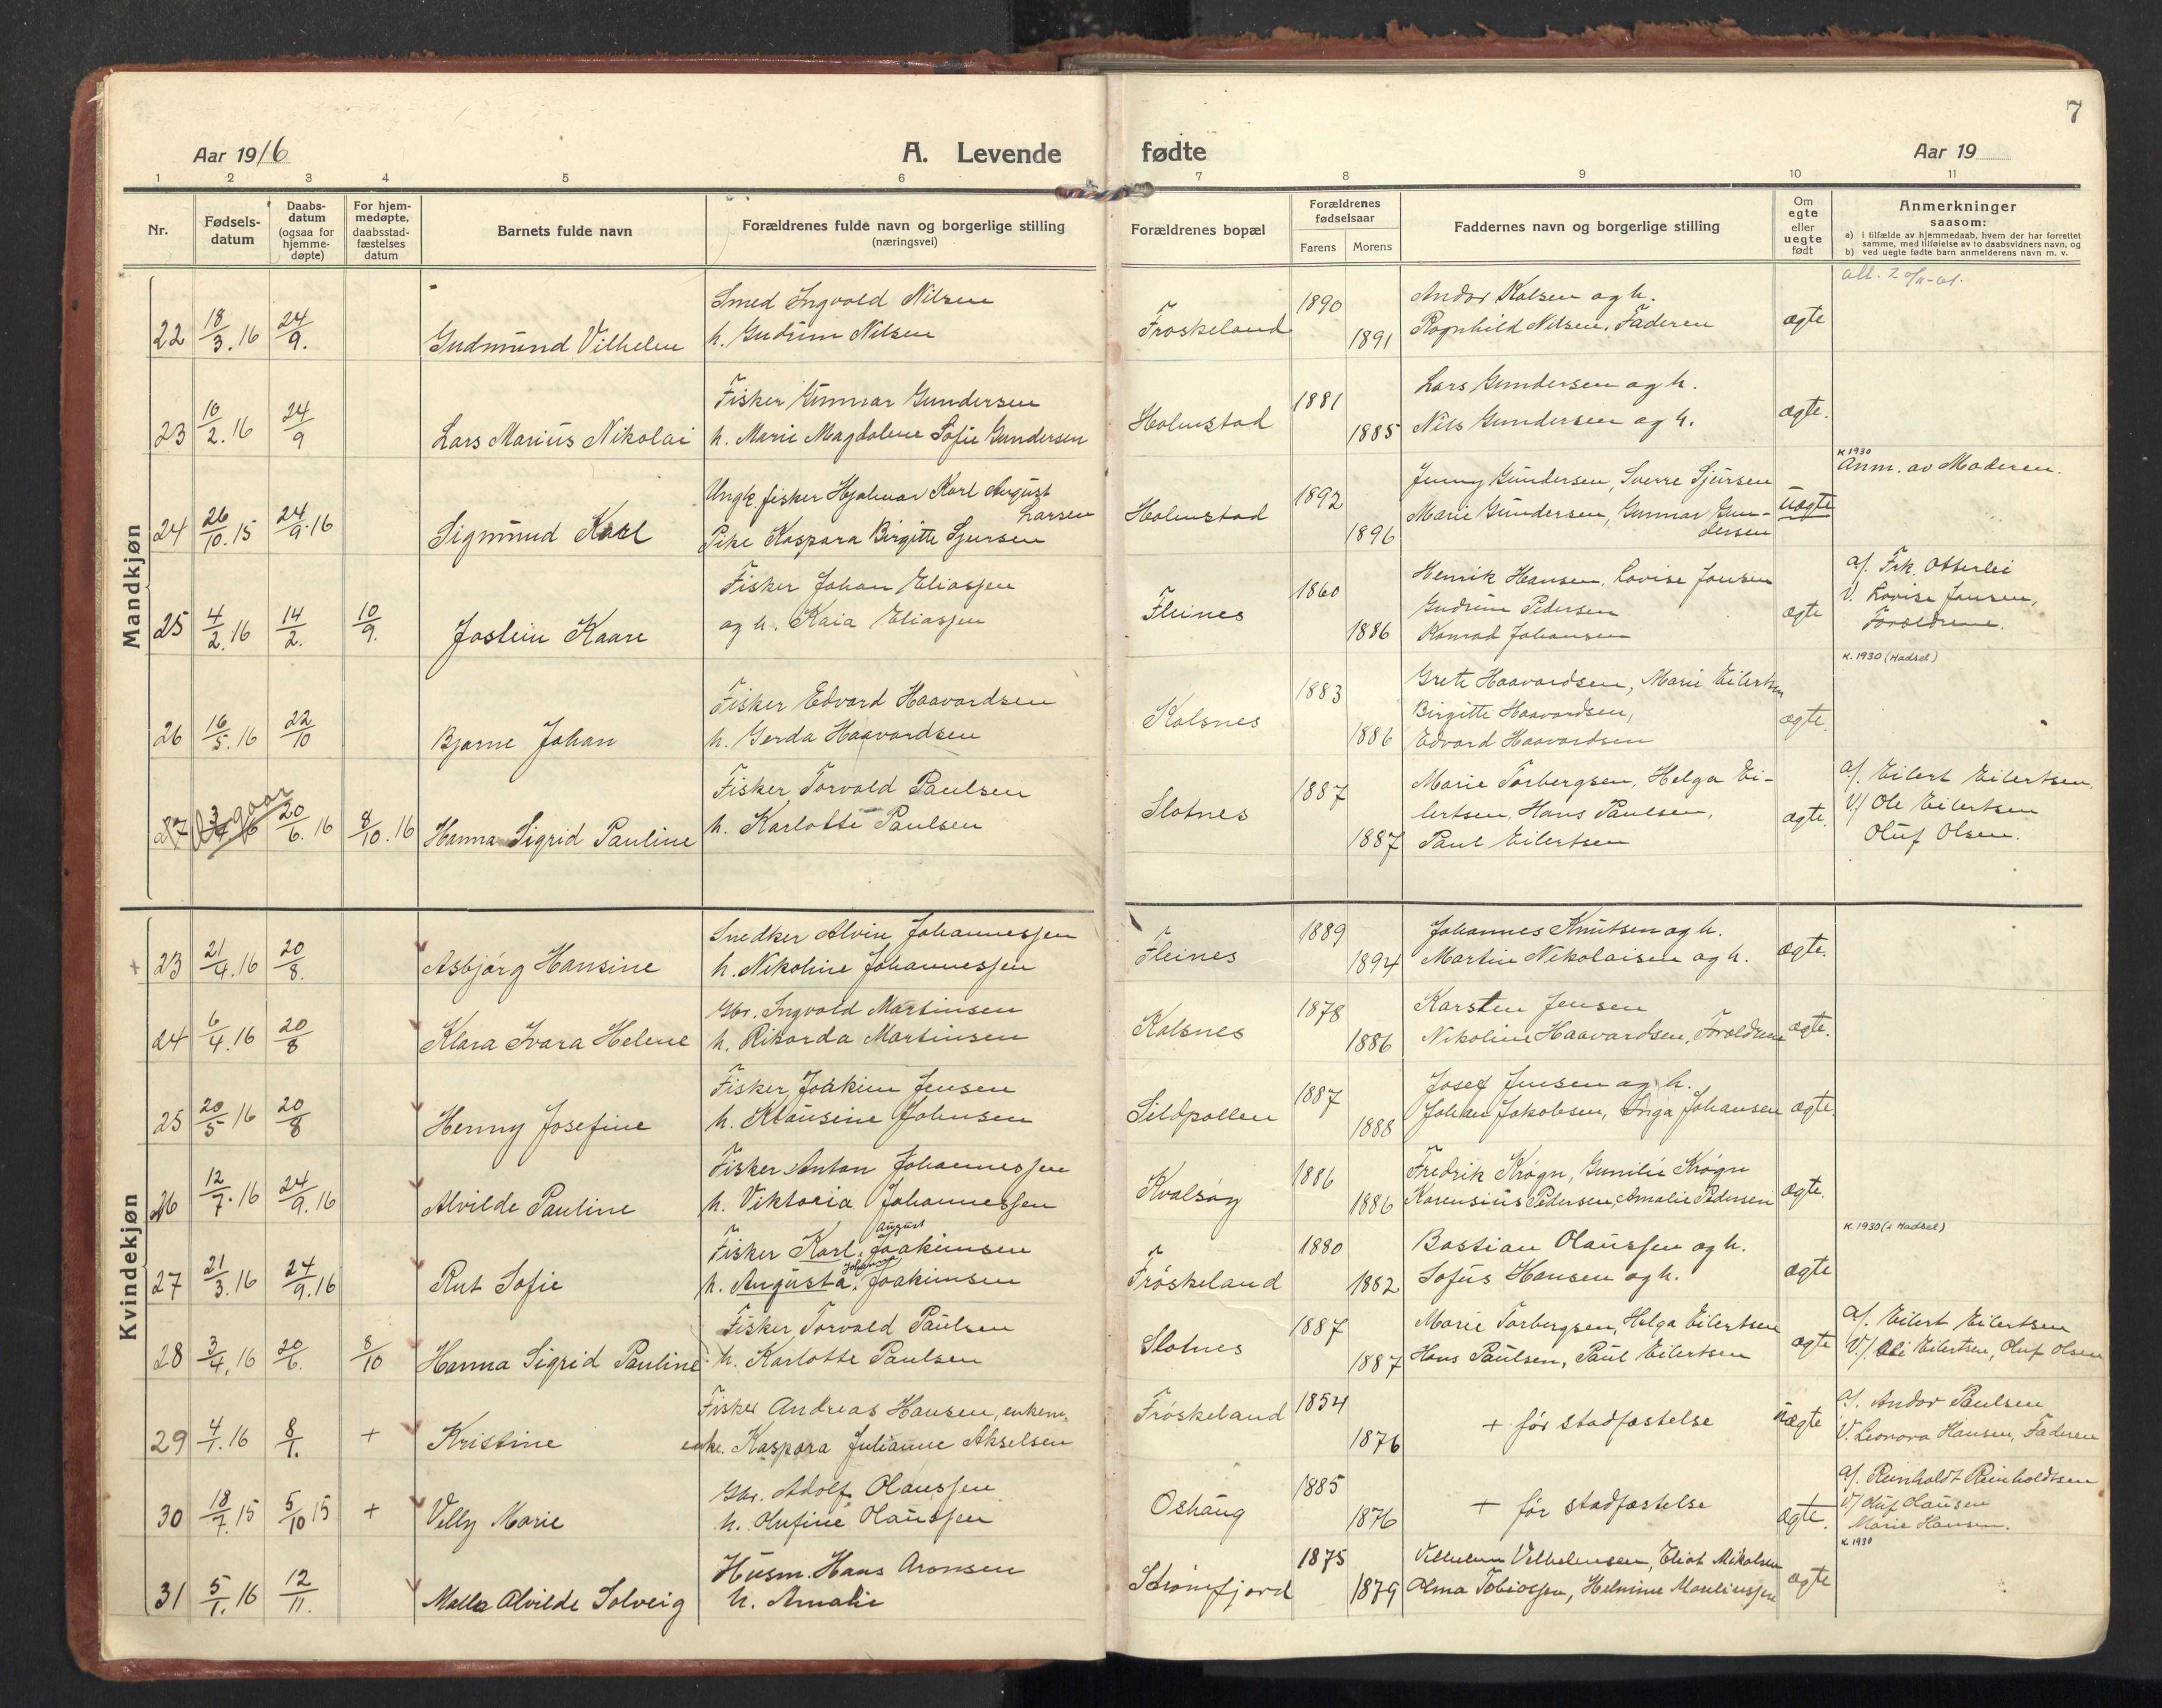 7
Aar 1916
A. Levende
fødte
Aar 19
1 2 3 4 5 6 7 8 9 10 11
Nr.
Fødsels-
datum
Daabs-
datum
(ogsaa for
hjemme-
døpte)
For hjem-
medøpte,
daabsstad-
fæstelses
datum
Barnets fulde navn
Forældrenes fulde navn og borgerlige stilling
(næringsvei)
Forældrenes bopæl
Forældrenes
fødselsaar
Farens Morens
Faddernes navn og borgerlige stilling
Om
egte
eller
uegte
født
Anmerkninger
saasom:
a) i tilfælde av hjemmedaab, hvem der har forrettet
samme, med tilføielse av to daabsvidners navn, og
b) ved uegte fødte barn anmelderens navn m. v.
Mandkjøn
22 18/3.16 24/9. Gudmund Vilhelm
Smed Ingvald Nilsen
h. Gudrun Nilsen
Frøskeland 1890 1891
Andor Kolsen og h.
Ragnhild Nilsen, Faderen
ægte
23 16/2.16 24/9 Lars Marius Nikolai
Fisker Gunnar Gundersen
h. Marie Magdalene Sofie Gundersen
Holmstad 1881 1885
Lars Gundersen og h.
Nils Gundersen og h.
ægte.
24 26/10.15 24/9.16 Sigmund Karl
Ungk. fisker Hjalmar Karl August
Larsen
Pike Kaspara Birgitte Sjursen
Holmstad 1892 1896
Jenny Gundersen, Sverre Sjursen
Marie Gundersen, Gunnar Gun-
dersen
uægte
K 1930
Anm. av Moderen.
25 4/2.16 14/2. 10/9. Jostein Kaare
Fisker Johan Eliassen
og h. Kaia Eliassen
Fleines 1860 1886
Henrik Hansen, Lovise Jensen
Gudrun Pedersen
Konrad Johansen
ægte
af. Frk. Otterlei
V. Lovise Jensen,
Forældrene.
K. 1930 (Hadsel)
26 16/5.16 22/10 Bjarne Johan
Fisker Edvard Haavardsen
h. Gerda Haavardsen
Kalsnes 1883 1886
Grete Haavardsen, Marie Eilertsen
Birgitte Haavardsen,
Edvard Haavardsen
ægte.
27 20/6.16 8/10.16 Hanna Sigrid Pauline
Fisker Torvald Paulsen
h. Karlotte Paulsen
Slotnes 1887 1887
Marie Torbergsen, Helga Ei-
lertsen, Hans Paulsen,
Paul Eilertsen
ægte.
af. Eilert Eilertsen,
V/ Ole Eilertsen
Oluf Olsen.
Kvindekjøn
+ 23 21/4.16 20/8. Asbjørg Hansine
Snedker Alvin Johannessen
h. Nikoline Johannessen
Fleines 1889 1894
Johannes Knutsen og h.
Martin Nikolaisen og h.
ægte.
24 6/4.16 20/8 Klara Ivara Helene
Gbr. Ingvald Martinsen
h. Rikarda Martinsen
Kalsnes 1878 1886
Karsten Jensen
Nikoline Haavardsen, Forældrene
ægte.
25 20/5.16 20/8 Henny Josefine
Fisker Joakim Jensen
h. Klausine Johnsen
Sildpollen 1887 1888
Josef Jensen og h.
Johan Jakobsen, Inga Johansen
ægte.
26 12/7.16 24/9.16 Alvilde Pauline
Fisker Anton Johannessen
h. Viktoria Johannessen
Kvalsøy 1886 1886
Fredrik Krøgn, Gunilie Krøgn
Karensius Pedersen, Amalie Pedersen
ægte.
K. 1930 (i Hadsel)
27 21/3.16 24/9.16 Rut Sofie
Fisker Karl August Joakimsen
h. Augusta Joakimsen
Frøskeland 1880 1882
Bastian Olaussen og h.
Sofus Hansen og h.
ægte
28 3/4.16 20/6. 8/10 Hanna Sigrid Pauline
Fisker Torvald Paulsen
h. Karlotte Paulsen
Slotnes 1887 1887
Marie Torbergsen, Helga Eilertsen
Hans Paulsen, Paul Eilertsen
ægte
af. Eilert Eilertsen
V./ Ole Eilertsen, Oluf Olsen
29 4/1.16 8/1. + Kristine
Fisker Andreas Hansen, enkem.
enke. Kaspara Julianne Akselsen
Frøskeland 1854 1876
+ før stadfæstelse
uægte
af. Andor Paulsen
V. Leonora Hansen, Faderen
30 18/7.15 5/10 15 + Velly Marie
Gbr. Adolf Olaussen
h. Olufine Olaussen
Oshaug 1885 1876
+ før stadfæstelse
ægte.
af. Reinholdt Reinholdtsen
V/ Oluf Hansen
Marie Hansen.
K. 1930
31 5/1.16 12/11. Malla Alvilde Solveig
Husm. Hans Aronsen
h. Amalie
Strømfjord 1875 1879
Vilhelm Vilhelmsen, Eliot Mikalsen
Olma Tobiassen, Helmine Mareliussen
ægte